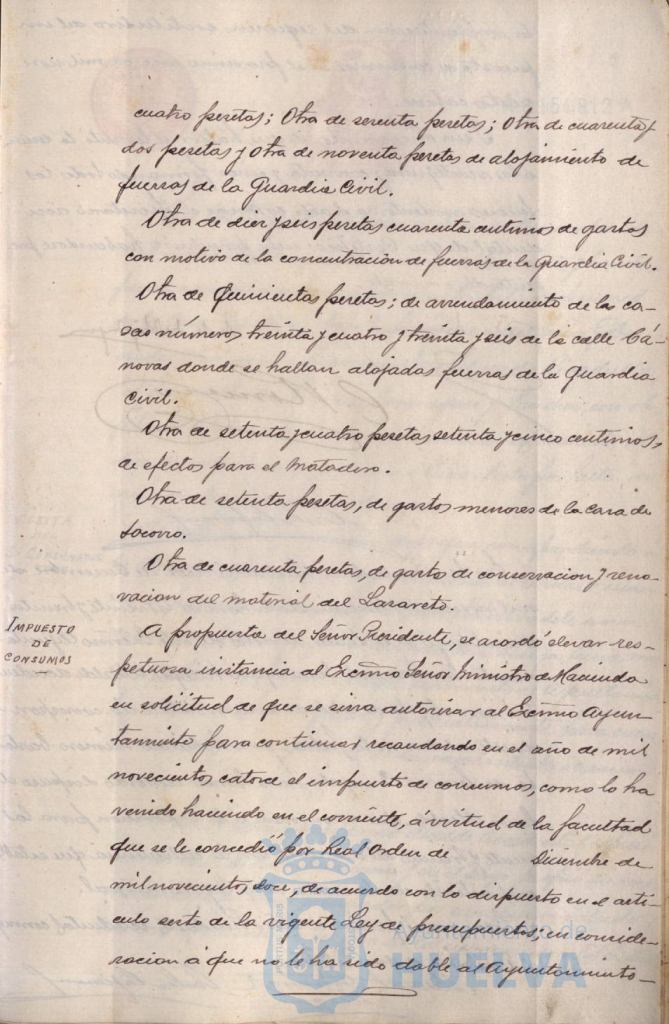 cuatro pesetas; Otra de sesenta pesetas; Otra de cuarenta y
dos pesetas y otra de noventa pesetas de alojamiento de
fuerzas de la Guardia Civil.
Otra de diez y seis pesetas cuarenta centimos de gastos
con motivo de la concentracion de fuerzas de la Guardia Civil.
Otra de Quinientas pesetas; de arrendamiento de las ca-
sas números treinta y cuatro y treinta y seis de la calle Cá-
novas donde se hallan alojadas fuerzas de la Guardia
Civil.
Otra de setenta y cuatro pesetas, setenta y cinco centimos,
de efectos para el Matadero.
Otra de setenta pesetas, de gastos menores de la Casa de
Socorro.
Otra de cuarenta pesetas, de gastos de conservacion y reno-
vacion del material del Lazareto.
IMPUESTO
DE
CONSUMOS
A propuesta del Señor Presidente, se acordó elevar res-
petuosa instancia al Excmo Señor Ministro de Hacienda
en solicitud de que se sirva autorizar al Excmo Ayun-
tamiento para continuar recaudando en el año de mil
novecientos catorce el impuesto de consumos, como lo ha
venido haciendo en el corriente, á virtud de la facultad
que se le concedió por Real Orden de Diciembre de
mil novecientos doce, de acuerdo con lo dispuesto en el arti-
culo sesto de la vigente Ley de presupuestos; en conside-
racion á que no le ha sido dable al Ayuntamiento-
Ayuntamiento de
HUELVA